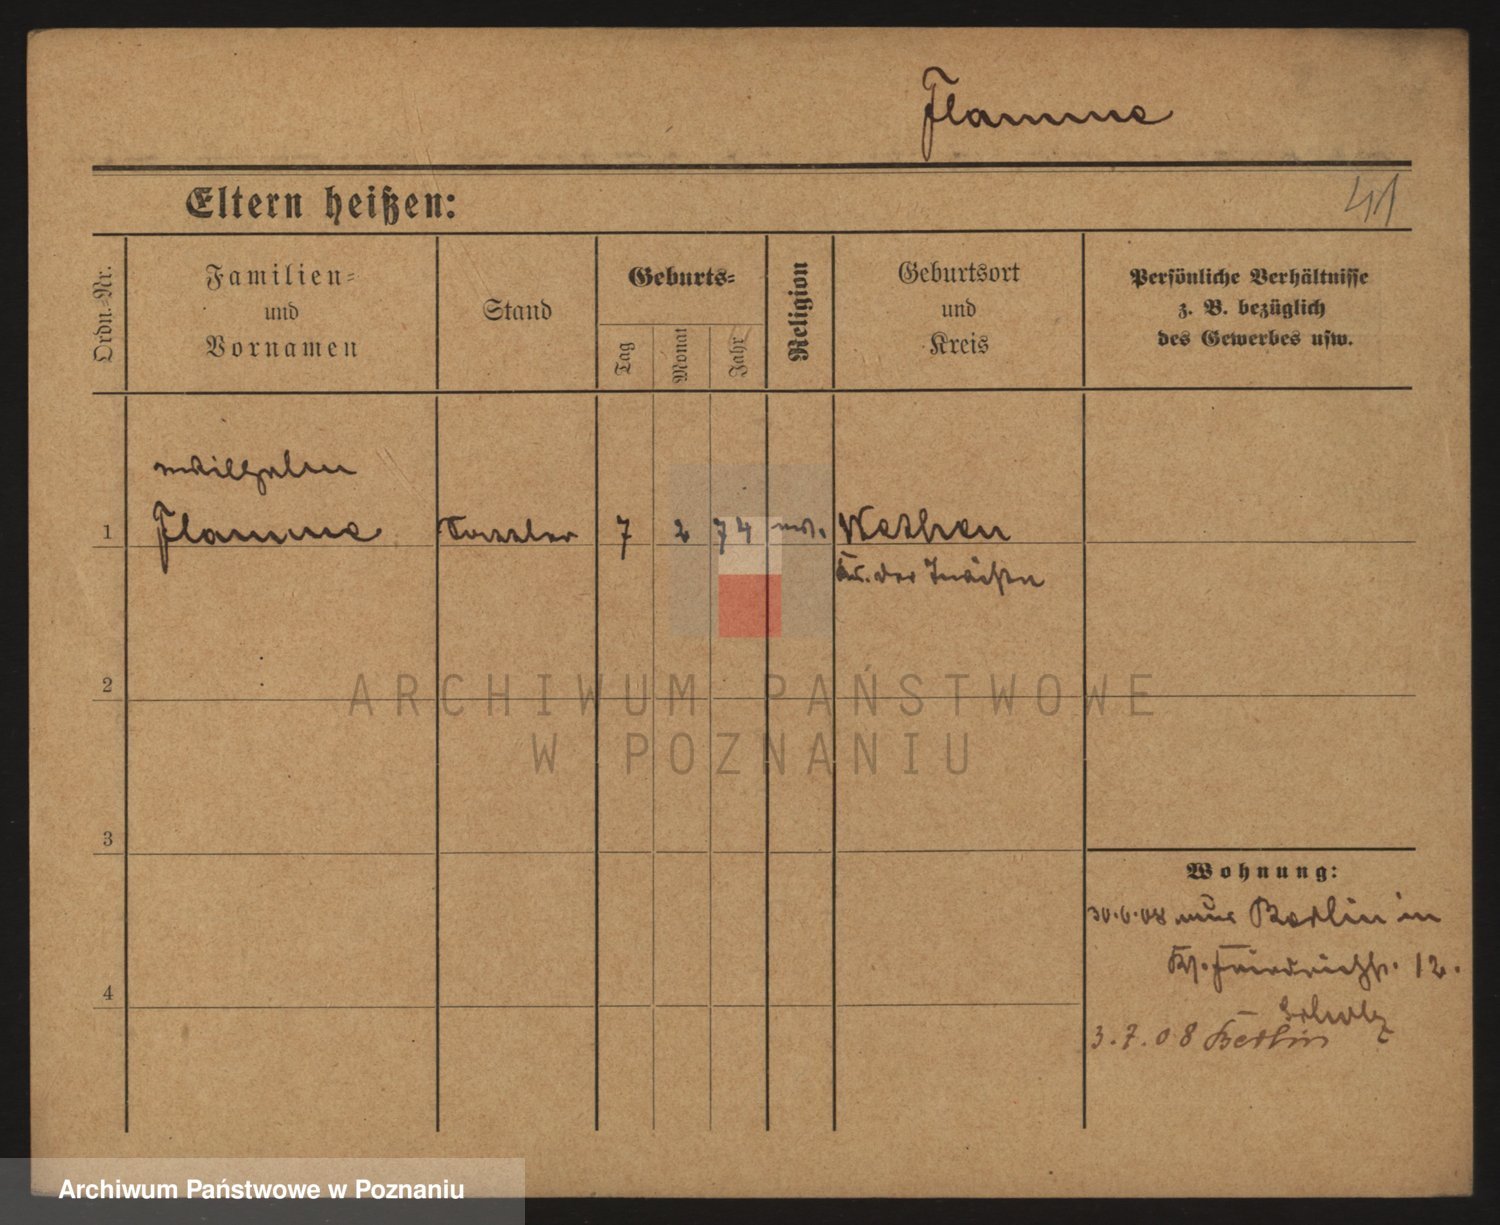 Flamme
Eltern heißen:
41
Ordn.-Nr.
Familien-
und
Vornamen
Stand
Geburts-
Tag
Monat
Jahr
Religion
Geburtsort
und
Kreis
Persönliche Verhältnisse
z. B. bezüglich
des Gewerbes usw.
Wilhelm
1 Flamme Sattler 7 2 74 ev. Wethen
Kr. der
2
ARCHIWUM PAŃSTWOWE
W POZNANIU
3
Wohnung:
30.6.08 aus Berlin in
Friedrichstr. 12.
4
Scholz
3.7.08 Berlin
Archiwum Państwowe w Poznaniu